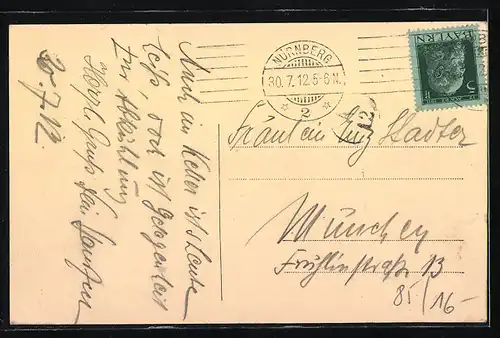 Auch im Keller ist's heute
heiß doch ist Gelegenheit
zur Abkühlung
Herzl. Gruß dein
30.7.12.
NÜRNBERG
30.7.12.5-6N.
2
BAYERN
5
Fräulein Stadler
München
Frühlingstraße 13
85/16-